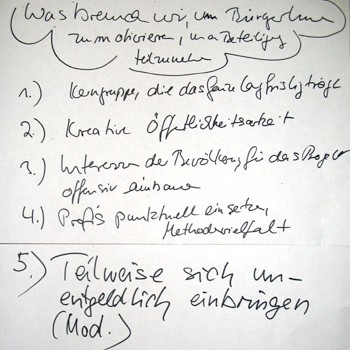 Was brauchen wir, um BürgerInnen
zu motivieren, an Beteiligung
teilzunehmen
1.) Kerngruppe, die das ganze langfristig trägt
2.) Kreative Öffentlichkeitsarbeit
3.) Interessen der Bevölkerung für das Projekt
offensiv einbauen
4.) Profis punktuell einsetzen,
Methodenvielfalt
5.) Teilweise sich un-
entgeldlich einbringen
(Mod.)